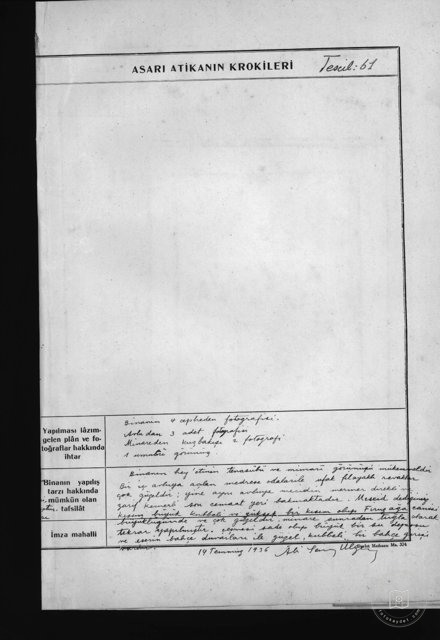 ASARI ATİKANIN KROKİLERİ
Tescil: 61
Yapılması lâzım-
gelen plân ve fo-
toğraflar hakkında
ihtar
Binanın 4 cepheden fotografisi.
Avludan 3 adet fotografisi
Minareden kuşbakışı 2 fotografi
1 umumî görünüş
Binanın yapılış
tarzı hakkında
mümkün olan
tafsilât
Binanın hey'etinin tenasübü ve mimarî görünüşü mükemmeldi
Bir iç avluya açılan medrese odalarile ufak filayaklı revaklar
çok güzeldi; yine aynı avluya mermer direkli
zarif kemerli son cemaat yeri bakmaktadır. Mescid dediğimiz
kısım büyük kubbeli ve yüksek bir kısım olup Firuzağa camisi
büyüklüğünde ve çok güzeldi, minare sonradan tuğla olarak
tekrar yapılmıştır, çeşmesi sade olup büyük bir su deposu
ve evin bahçe duvarları ile güzel, kubbeli, bir bahçe girişi
vardır.
İmza mahalli
14 Temmuz 1936
Ali
Ülgen
Matbaası No. 324